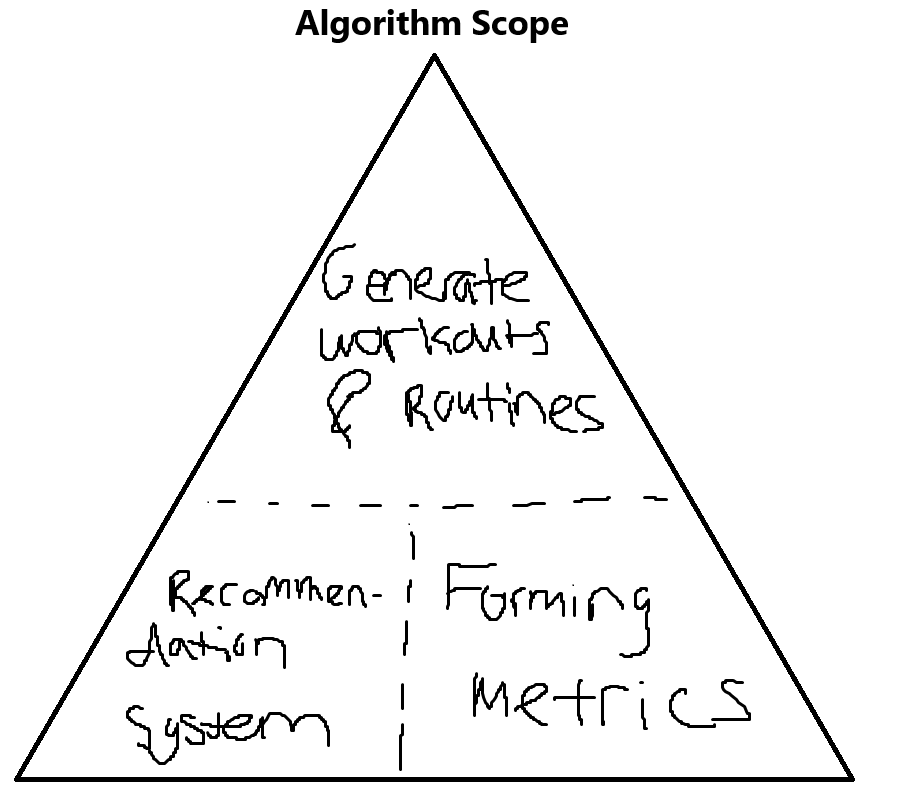 Algorithm Scope
Generate
workouts
& Routines
Recommen-
dation
System
Forming
Metrics